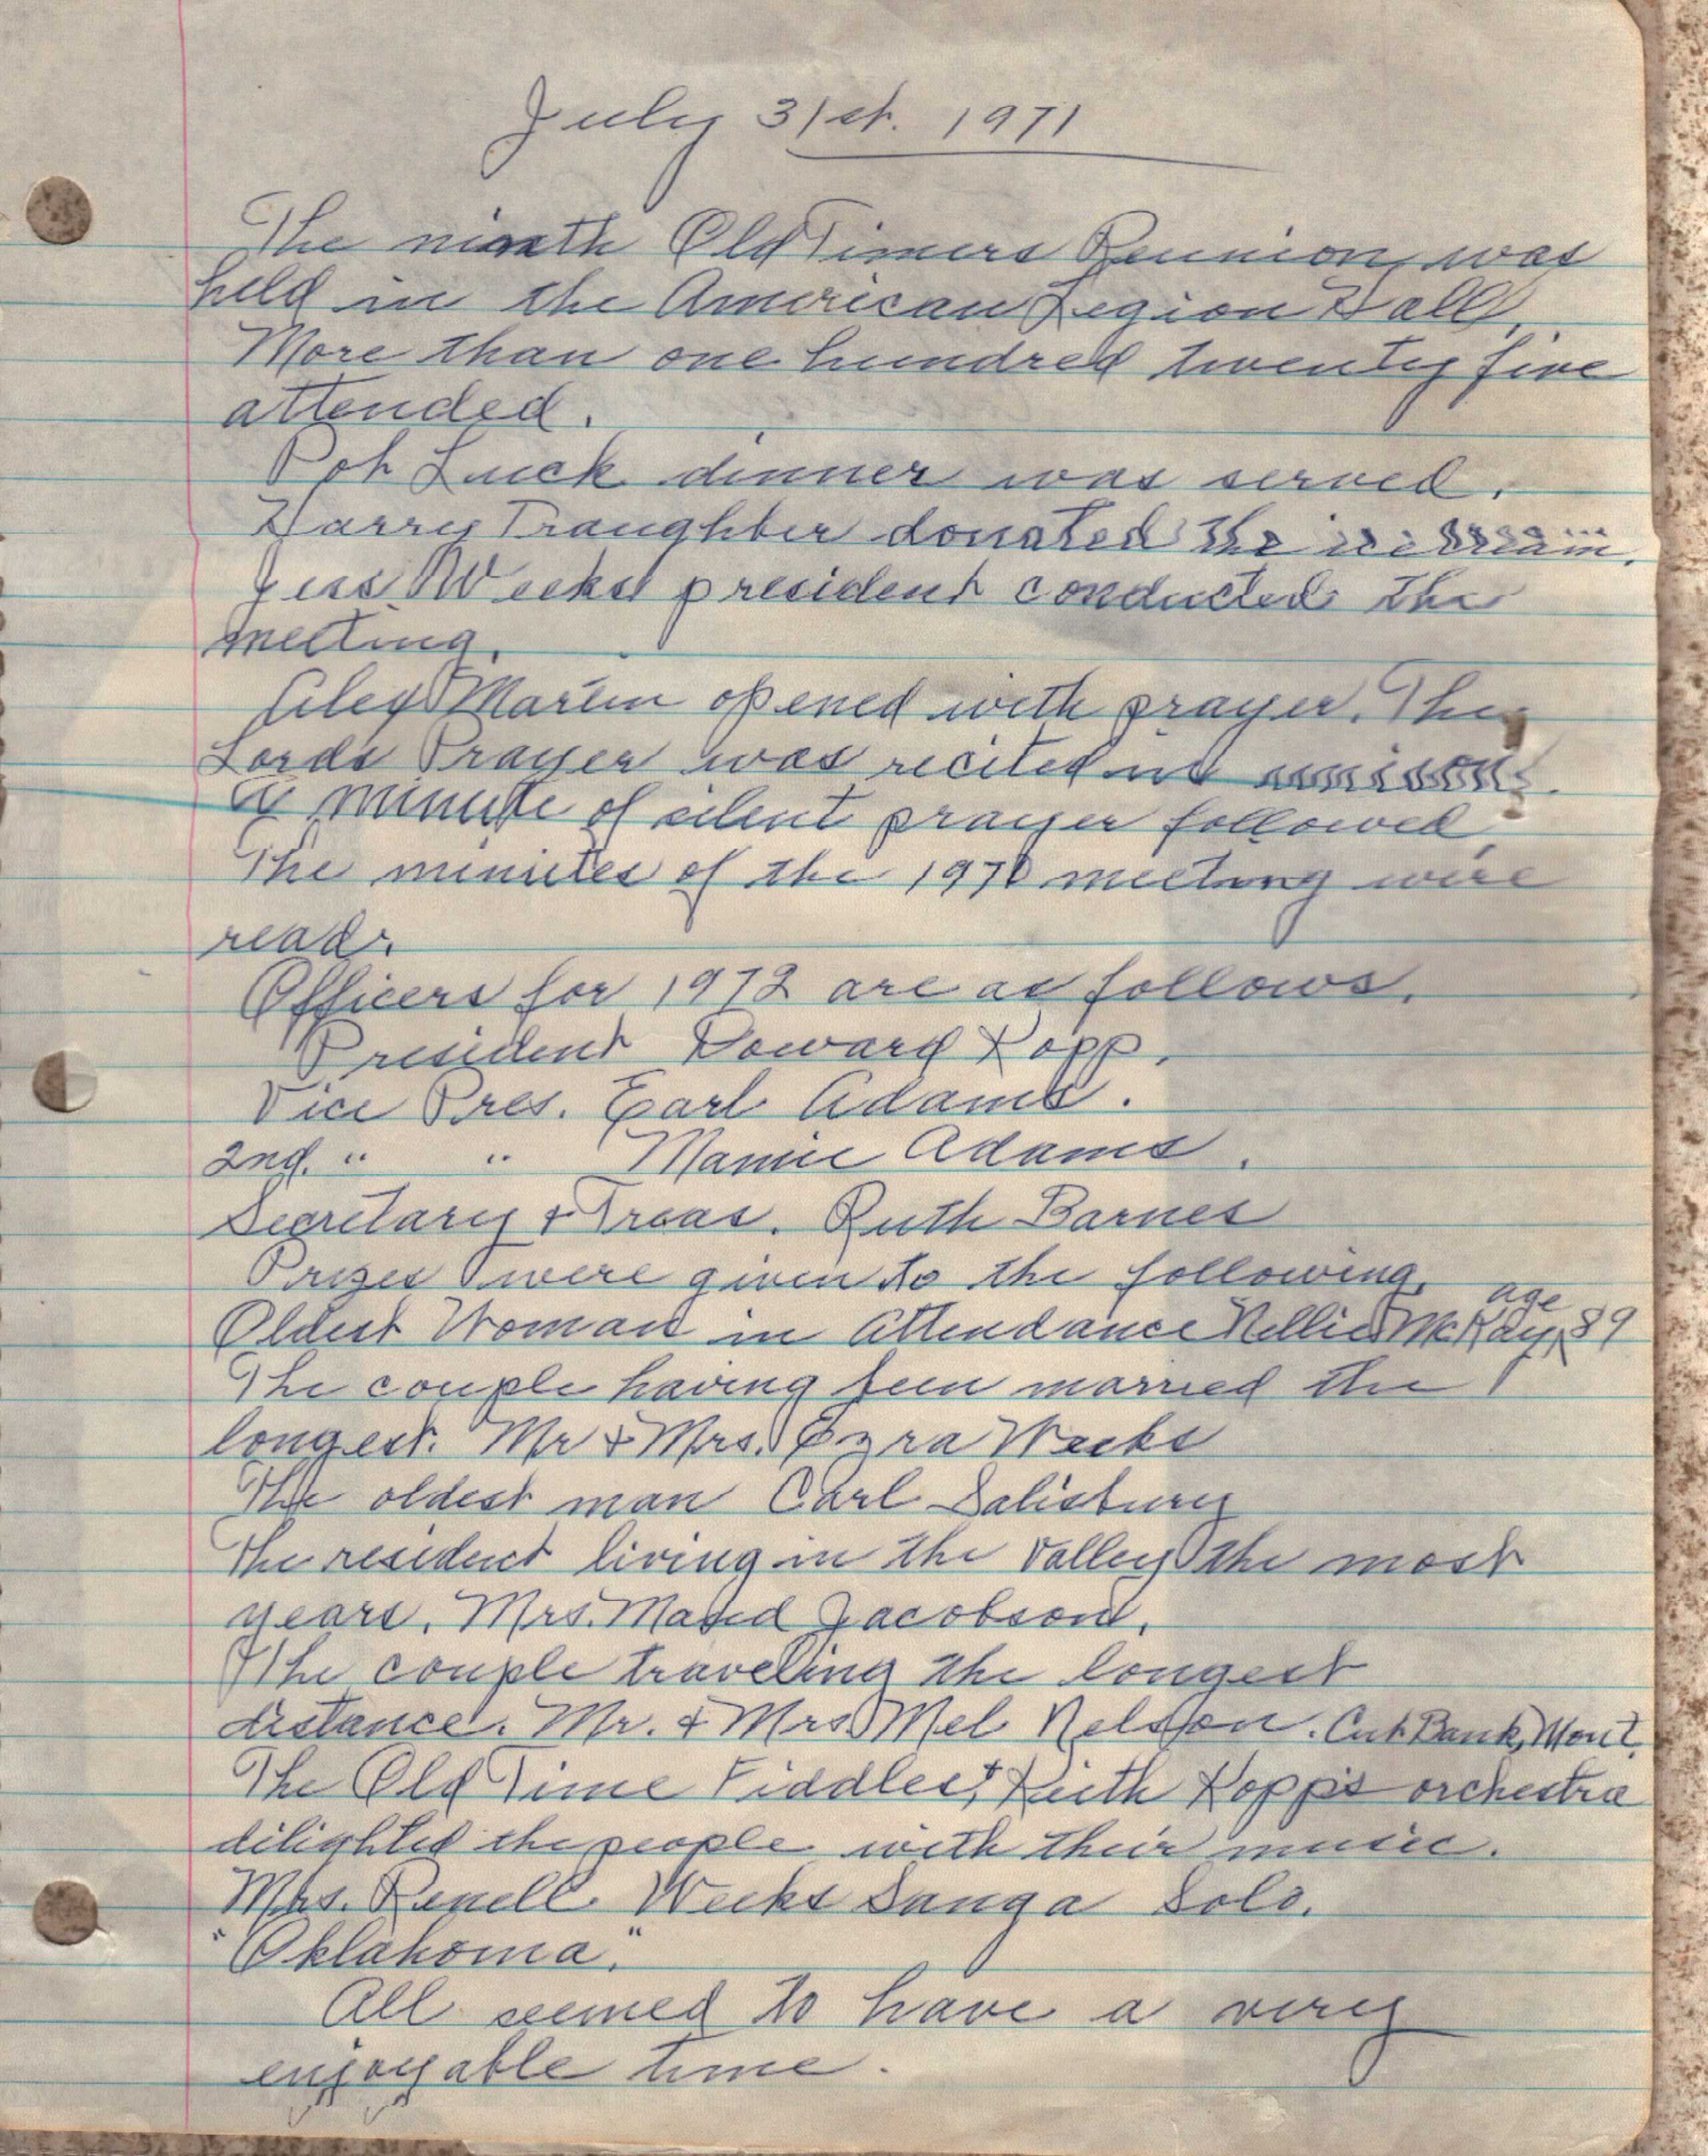 July 31st. 1971
The ninth Old Timers Reunion, was
held in the American Legion Hall.
More than one hundred twenty five
attended.
Pot Luck dinner was served.
Harry Traughber donated the ice cream.
Jess Weeks president conducted the
meeting.
Alex Martin opened with prayer. The
Lords Prayer was recited in unison.
A minute of silent prayer followed.
The minutes of the 1970 meeting were
read.
Officers for 1972 are as follows.
President Howard Kopp.
Vice Pres. Earl Adams.
2nd. " " Mamie Adams.
Secretary & Treas. Ruth Barnes
Prizes were given to the following.
Oldest Woman in attendance Nellie McKay, age 89
The couple having been married the
longest. Mr & Mrs. Ezra Weeks
The oldest man Carl Salisbury
The resident living in the Valley the most
years. Mrs. Maud Jacobson.
The couple traveling the longest
distance. Mr. & Mrs Mel Nelson. Cut Bank, Mont.
The Old Time Fiddles, & Keith Kopp's orchestra
dilighted the people with their music.
Mrs. Renell Weeks Sang a Solo.
"Oklahoma."
All seemed to have a very
enjoyable time.